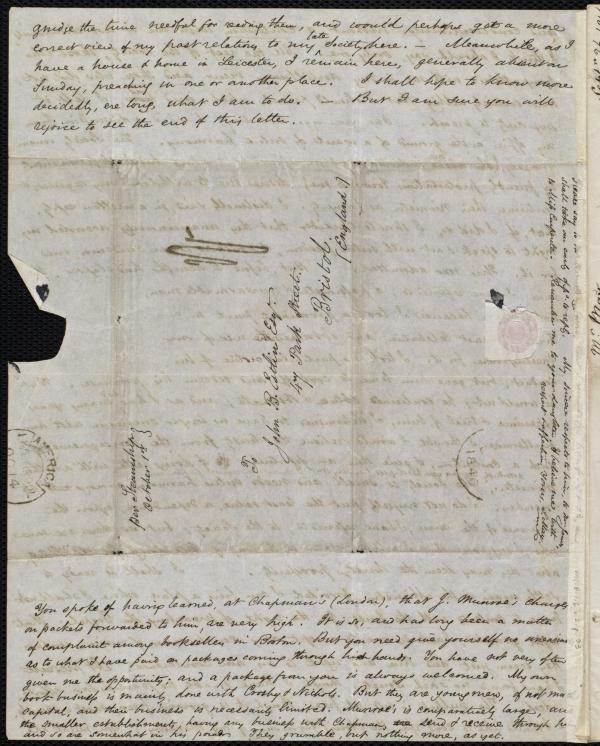 grudge the time needful for reading them, and would perhaps get a more
correct view of my past relations to my late Society here. — Meanwhile, as I
have a house & home in Leicester, I remain here, generally absent on
Sunday, preaching in one or another place. I shall hope to know more
decidedly, ere long, what I am to do. But I am sure you will
rejoice to see the end of this letter.
To
John B. Estlin Esqr.
47 Park Street.
Bristol.
(England.)
per Steamship
October 1st
AMERICA
shall take an early opp.y to reply. My sincere respects to him, to
to Miss Carpenter. Remember me to your daughter, & believe me, with
You spoke of having learned, at Chapman's (London), that J. Munroe's charges
on packets forwarded to him are very high. It is so, and has long been a matter
of complaint among booksellers in Boston. But you need give yourself no uneasiness
as to what I have paid on packages coming through his hands. You have not very often
given me the opportunity; and a package from you is always welcomed. My own
book business is mainly done with Crosby & Nichols. But they are young men, of not much
capital, and their business is necessarily limited. Munroe's is comparatively large, and
the smaller establishments, having any business with Chapman, send & receive through him
and so are somewhat in his power. They grumble, but nothing more, as yet.